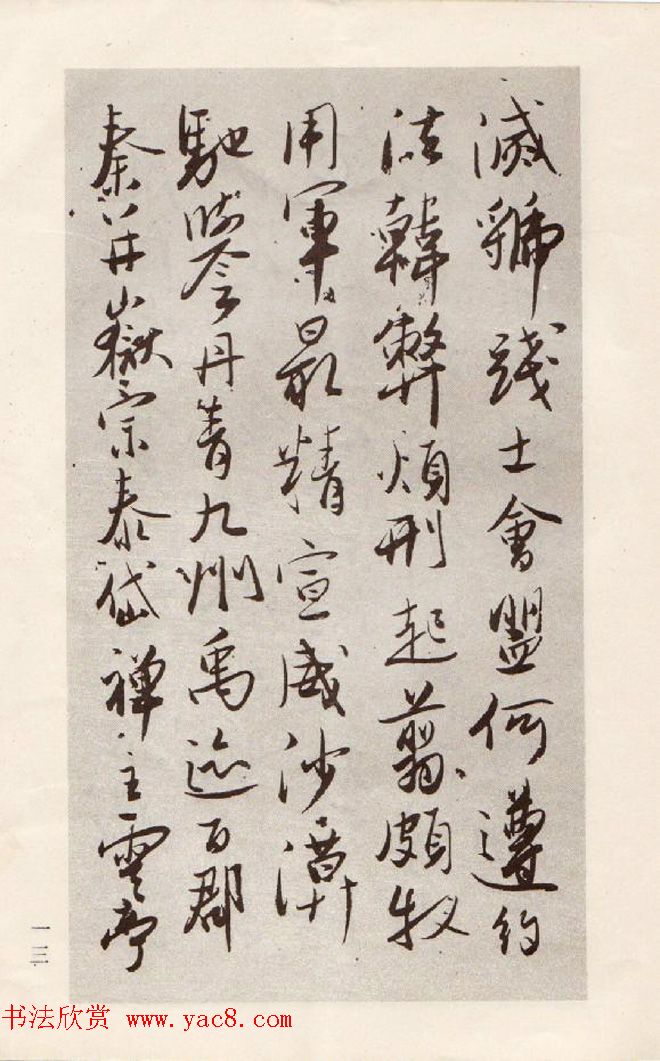 滅虢踐土會盟何遵約
法韓弊煩刑起翦頗牧
用軍最精宣威沙漠
馳譽丹青九州禹迹百郡
秦并嶽宗泰岱禪主雲亭
一三
书法欣赏 www.yac8.com